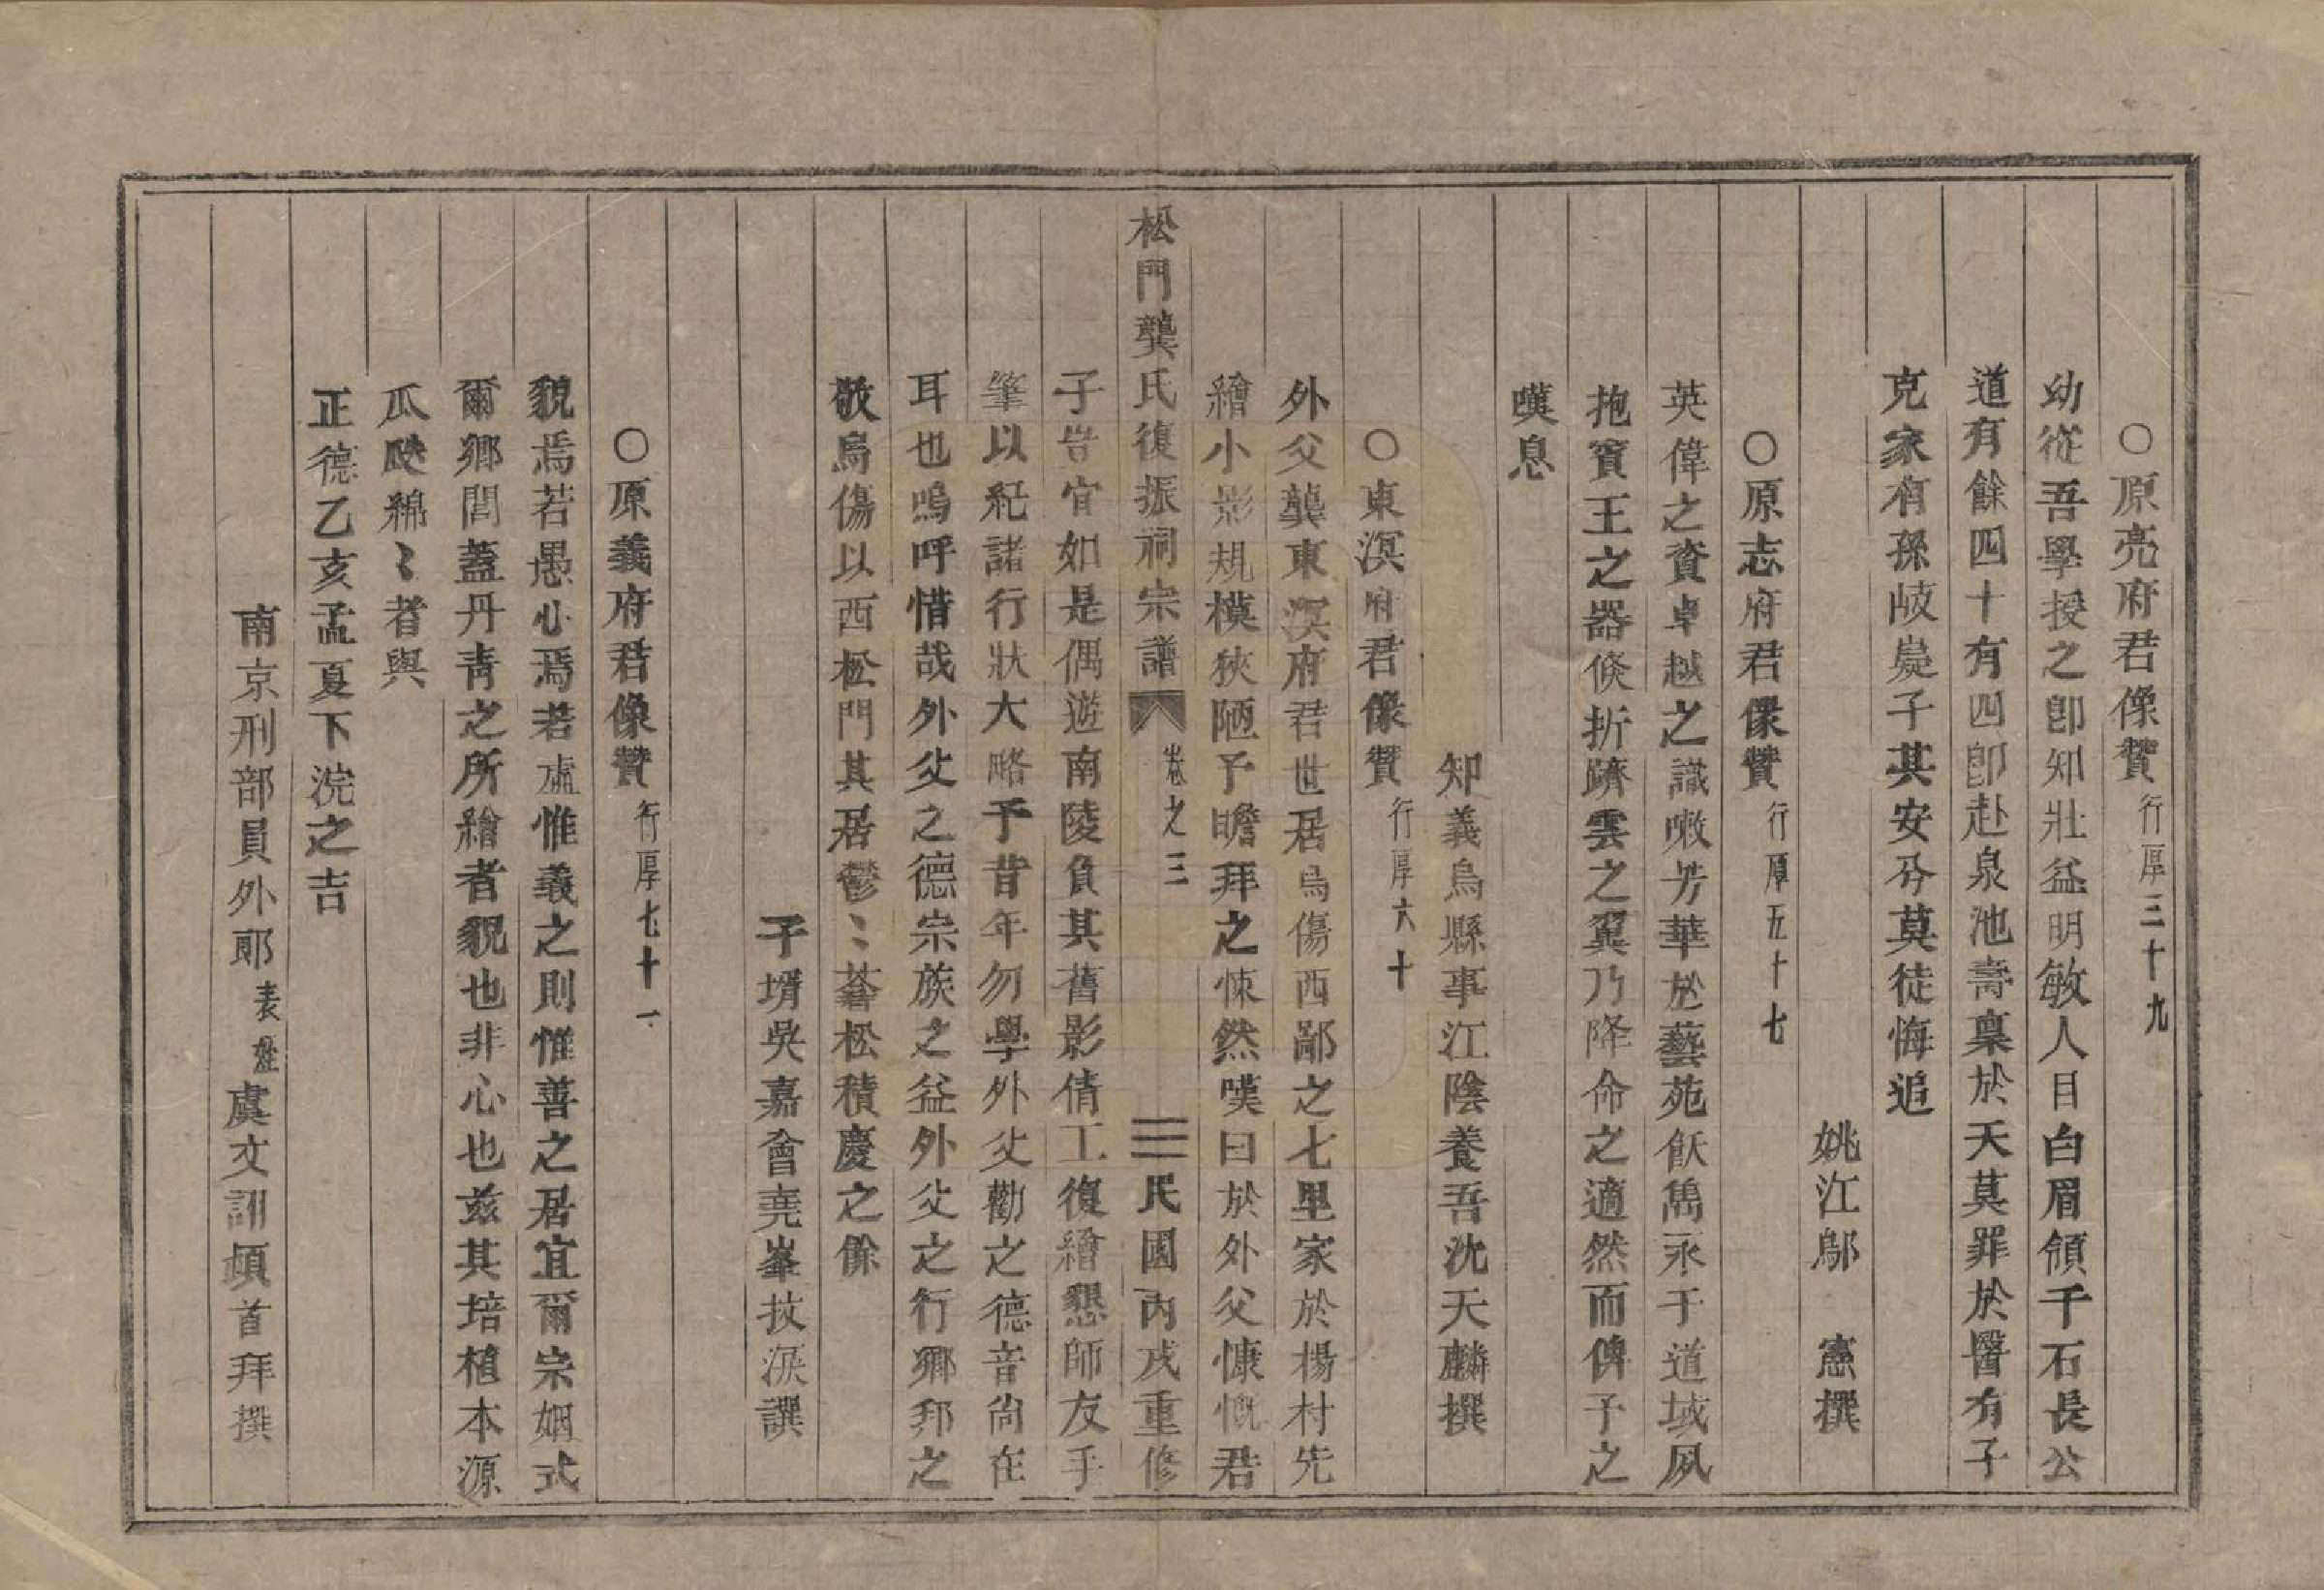 ○原亮府君像贊行厚三十九
幼從吾學授之卽知壯益明敏人目白眉領千石長公
道有餘四十有四卽赴泉池壽稟於天莫罪於醫有子
克家有孫岐嶷子其安分莫徒悔追
姚江鄔　憲撰
○原志府君像贊行厚五十七
英偉之資卓越之識噉芳華於藝苑飫雋永于道域夙
抱寶王之器倏折躋雲之翼乃降命之適然而俾予之
嘆息
知義烏縣事江陰養吾沈天麟撰
○東溟府君像贊行厚六十
外父龔東溟府君世居烏傷西鄙之七里家於楊村先
繪小影規模狹陋予瞻拜之悚然嘆曰於外父慷慨君
松門龔氏復振祠宗譜　卷之三　民國丙戌重修
子豈宜如是偶遊南陵負其舊影倩工復繪懇師友乎
筆以紀諸行狀大略予昔年勿學外父勸之德音尙在
耳也嗚呼惜哉外父之德宗族之益外父之行鄉邦之
敬烏傷以西松門其居鬱〻蒼松積慶之餘
子壻吳嘉會堯峯抆淚譔
○原義府君像贊行厚七十一
貌焉若愚心焉若虛惟義之則惟善之居宜爾宗姻式
爾鄉閭蓋丹青之所繪者貌也非心也玆其培植本源
瓜瓞綿〻者與
正德乙亥孟夏下浣之吉
南京刑部員外郞表姪虞文訓頓首拜撰